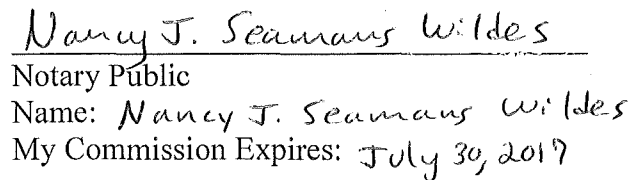 Nancy J. Seamans Wildes
Notary Public
Name: Nancy J. Seamans Wildes
My Commission Expires: July 30, 2017